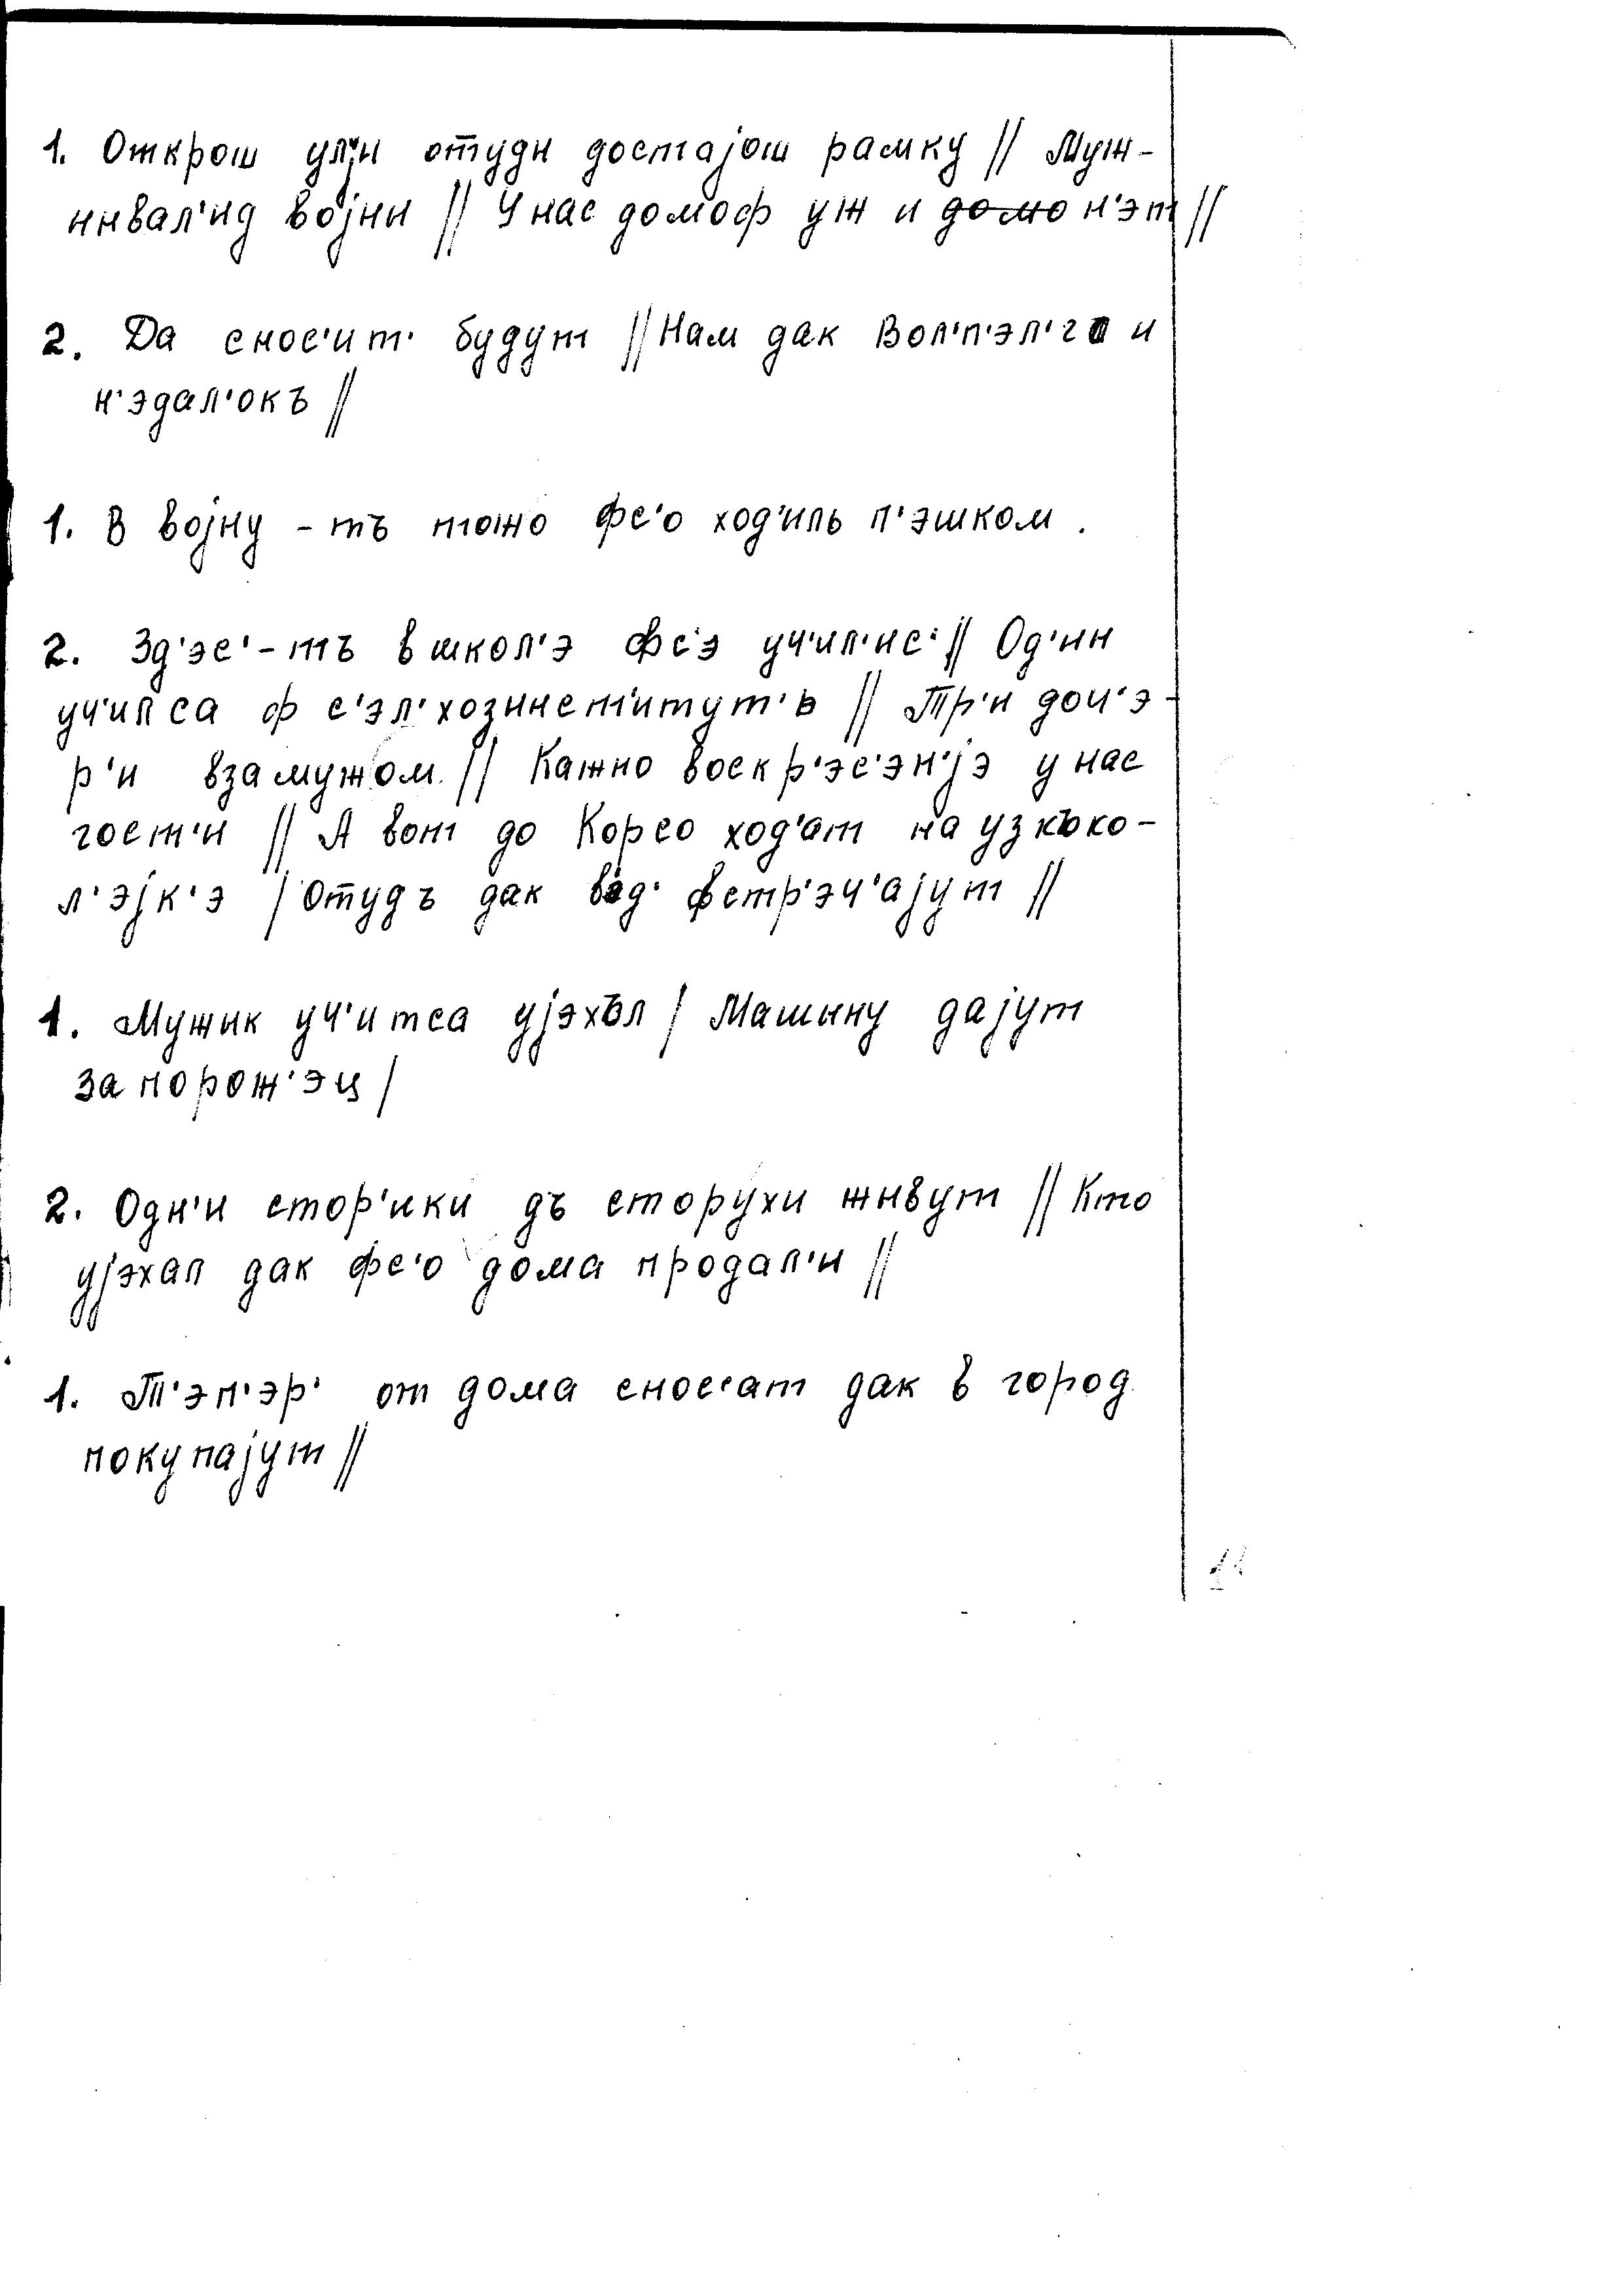 1. Открош ул'jи отуды достаjош рамку // Муж-
инвал'ид воjны // У нас домоф уж и домо н'эт //
2. Да снос'ит' будут // Нам дак Вол'п'эл'га и
н'эдал'окъ //
1. В воjну - тъ тожо фс'о ход'иль п'эшком .
2. Зд'эс' - тъ в школ'э фс'э уч'ил'ис' // Од'ин
уч'илса ф с'эл'хозинст'итут'ь // Тр'и доч'э -
р'и взамужом. // Кажно воскр'эс'эн'jэ у нас
гост'и // А вот до Корсо ход'ат на узкъко -
л'эjк'э / Отудъ дак вэд' фстр'эч'аjут //
1. Мужык уч'итса уjэхъл / Машыну даjут
запорож'эц /
2. Одн'и стор'ики дъ сторухи жывут // Кто
уjэхал дак фс'о дома продал'и //
1. Т'эп'эр' от дома снос'ат дак в город
покупаjут //